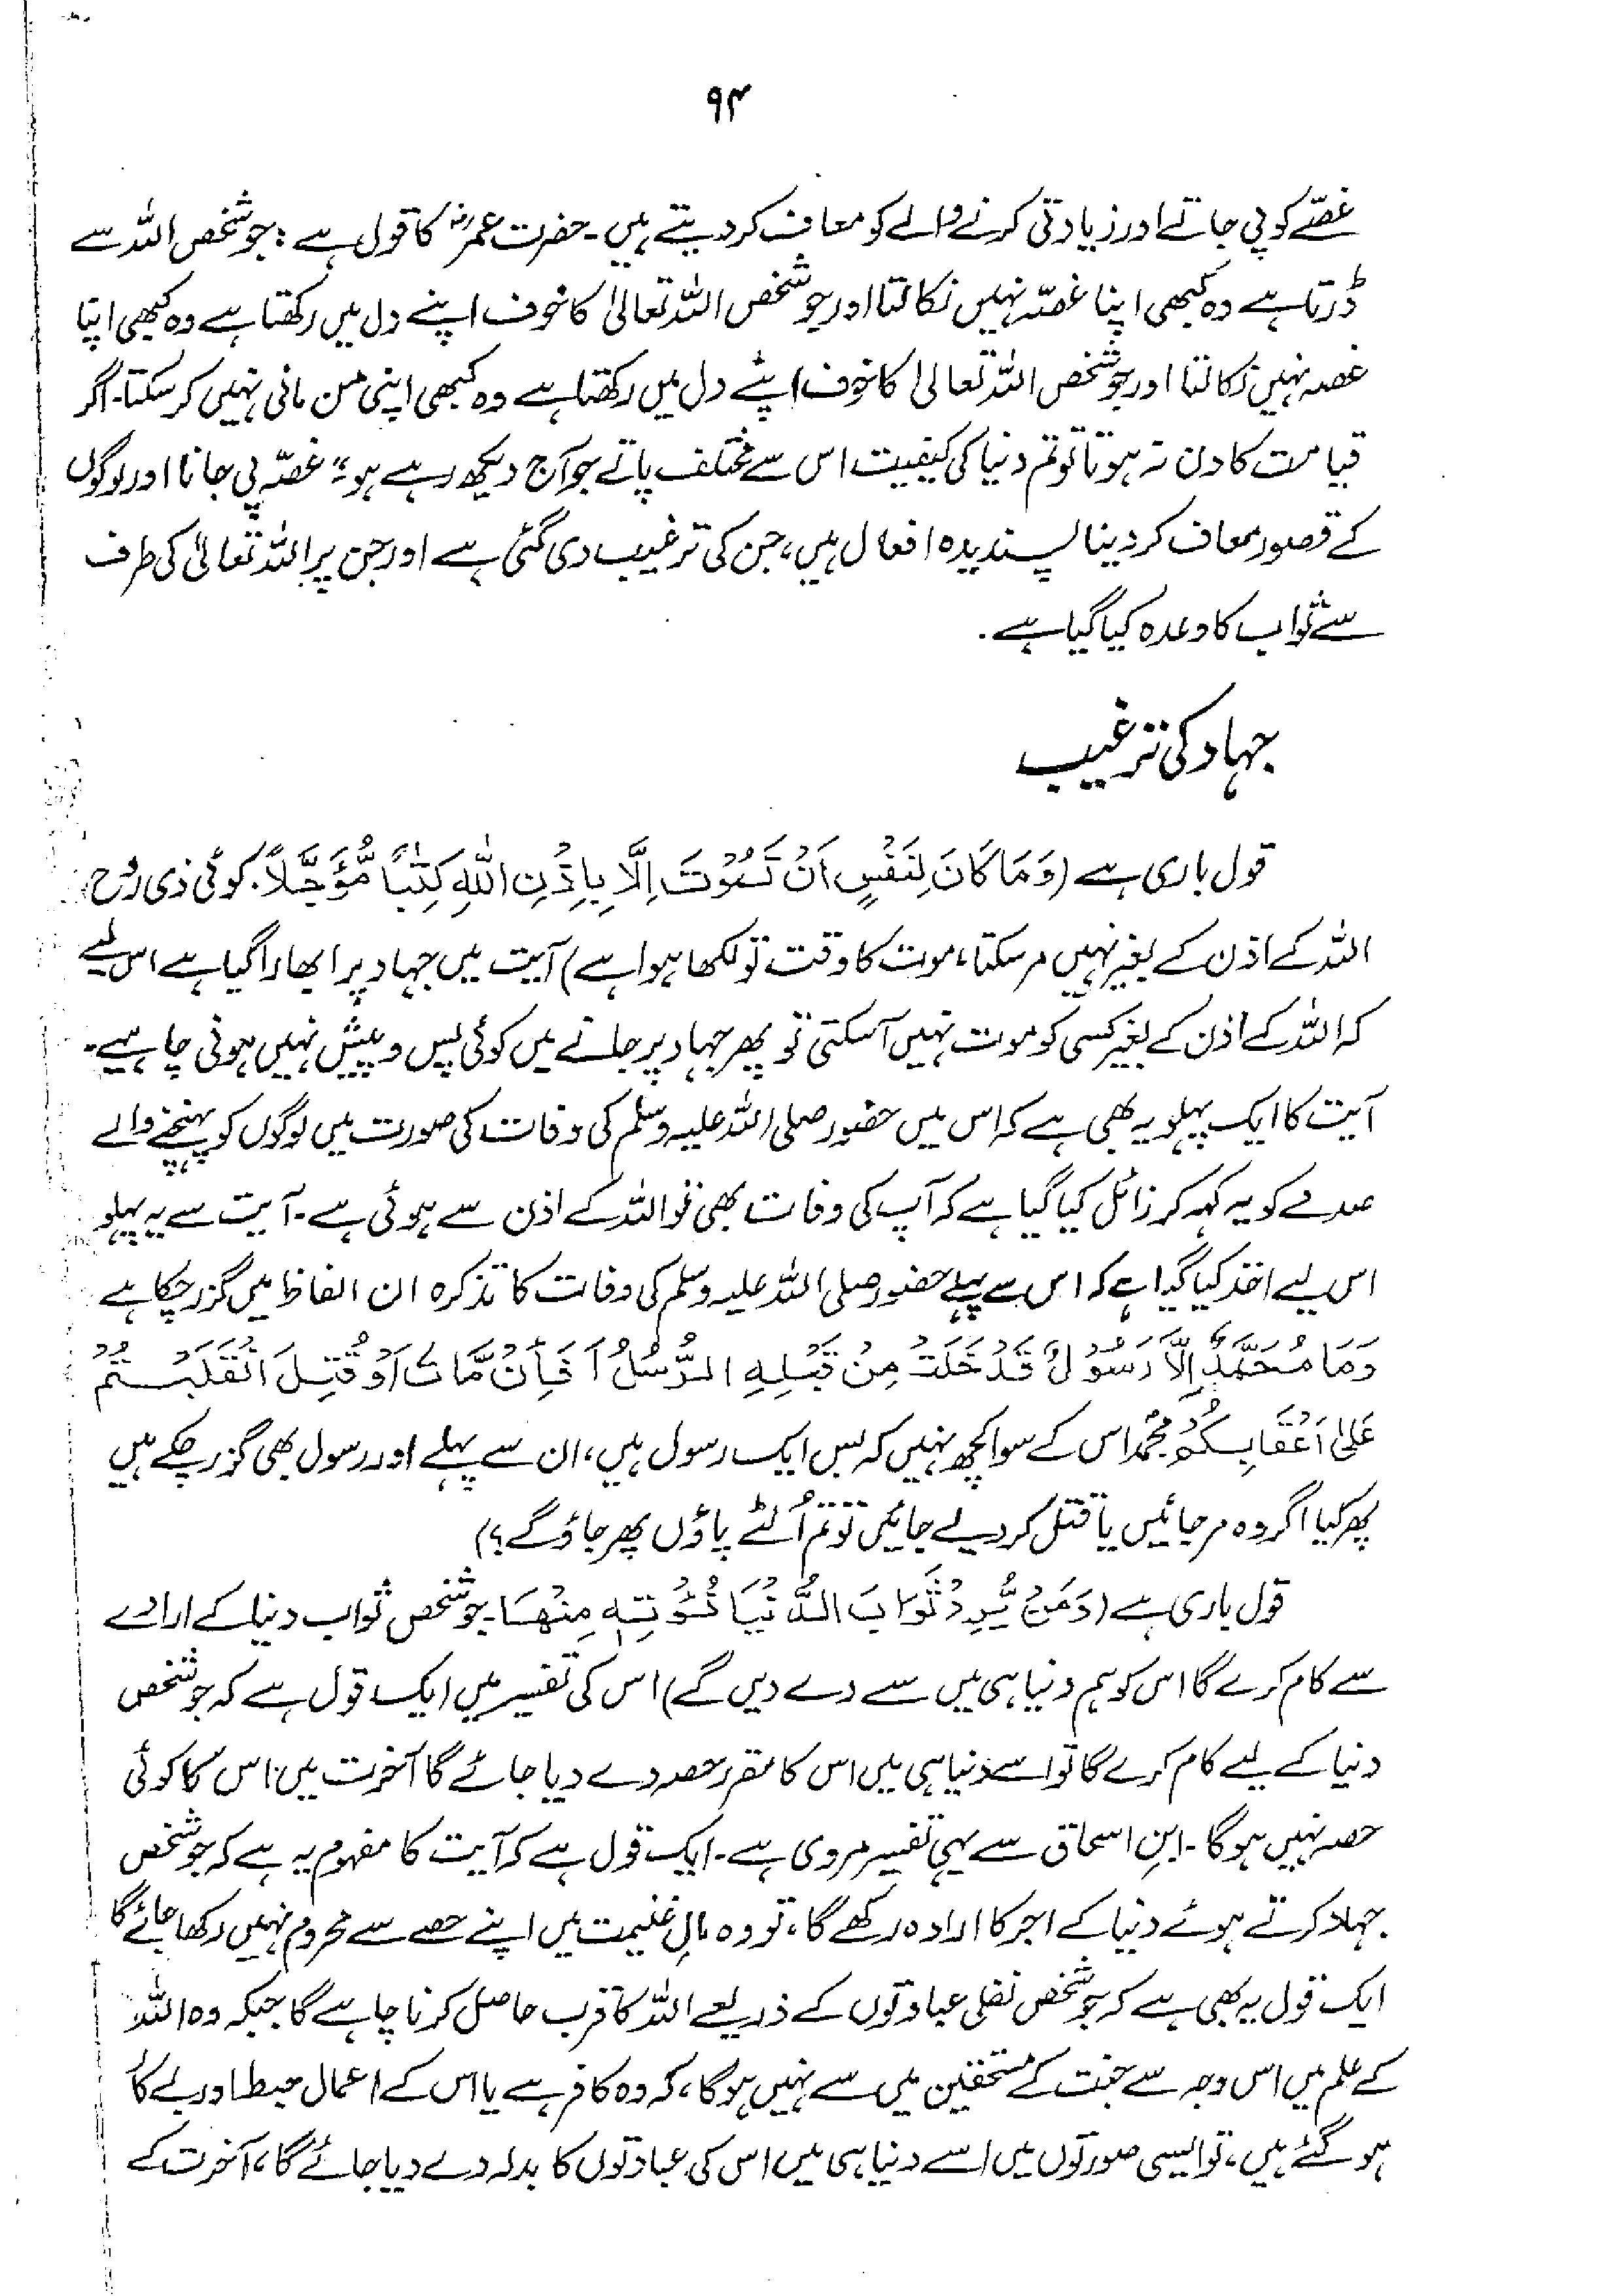 ۹۴
غصّے کو پی جاتے اور زیادتی کرنے والے کو معاف کر دیتے ہیں۔ حضرت عمرؓ کا قول ہے: جو شخص اللہ سے
ڈرتا ہے وہ کبھی اپنا غصّہ نہیں نکالتا اور جو شخص اللہ تعالیٰ کا خوف اپنے دل میں رکھتا ہے وہ کبھی اپنا
غصہ نہیں نکالتا اور جو شخص اللہ تعالیٰ کا خوف اپنے دل میں رکھتا ہے وہ کبھی اپنی من مانی نہیں کر سکتا۔ اگر
قیامت کا دن نہ ہوتا تو تم دنیا کی کیفیت اس سے مختلف پاتے جو آج دیکھ رہے ہو۔" غصّہ پی جانا اور لوگوں
کے قصور معاف کر دینا پسندیدہ افعال ہیں، جن کی ترغیب دی گئی ہے اور جن پر اللہ تعالیٰ کی طرف
سے ثواب کا وعدہ کیا گیا ہے۔
جہاد کی ترغیب
قول باری ہے (وَمَا کَانَ لِنَفْسٍ اَنْ تَمُوْتَ اِلَّا بِاِذْنِ اللّٰہِ کِتٰبًا مُّؤَجَّلاً۔ کوئی ذی رُوح
اللہ کے اذن کے بغیر نہیں مر سکتا، موت کا وقت تو لکھا ہوا ہے) آیت میں جہاد پر ابھارا گیا ہے اس لیے
کہ اللہ کے اذن کے بغیر کسی کو موت نہیں آ سکتی تو پھر جہاد پر جانے میں کوئی پس و پیش نہیں ہونی چاہیے۔
آیت کا ایک پہلو یہ بھی ہے کہ اس میں حضور صلی اللہ علیہ وسلم کی وفات کی صورت میں لوگوں کو پہنچنے والے
صدمے کو یہ کہہ کر زائل کیا گیا ہے کہ آپ کی وفات بھی تو اللہ کے اذن سے ہوئی ہے۔ آیت سے یہ پہلو
اس لیے اخذ کیا گیا ہے کہ اس سے پہلے حضور صلی اللہ علیہ وسلم کی وفات کا تذکرہ ان الفاظ میں گزر چکا ہے
وَمَا مُحَمَّدٌ اِلَّا رَسُوْلٌ قَدْ خَلَتْ مِنْ قَبْلِہِ الرُّسُلُ اَفَاْئِنْ مَّاتَ اَوْ قُتِلَ انْقَلَبْتُمْ
عَلیٰ اَعْقَابِکُمْ محمدؐ اس کے سوا کچھ نہیں کہ بس ایک رسول ہیں، ان سے پہلے اور رسول بھی گزر چکے ہیں
پھر کیا اگر وہ مر جائیں یا قتل کر دیے جائیں تو تم اُلٹے پاؤں پھر جاؤ گے؟)
قول باری ہے (وَمَنْ یُّرِدْ ثَوَابَ الدُّنْیَا نُؤْتِہٖ مِنْھَا۔ جو شخص ثواب دنیا کے ارادے
سے کام کرے گا اس کو ہم دنیا ہی میں سے دے دیں گے) اس کی تفسیر میں ایک قول ہے کہ جو شخص
دنیا کے لیے کام کرے گا تو اسے دنیا ہی میں اس کا مقرر حصہ دے دیا جائے گا آخرت میں اس کا کوئی
حصہ نہیں ہو گا۔ ابنِ اسحاق سے یہی تفسیر مروی ہے۔ ایک قول ہے کہ آیت کا مفہوم یہ ہے کہ جو شخص
جہاد کرتے ہوئے دنیا کے اجر کا ارادہ رکھے گا، تو وہ مالِ غنیمت میں اپنے حصے سے محروم نہیں رکھا جائے گا
ایک قول یہ بھی ہے کہ جو شخص نفلی عبادتوں کے ذریعے اللہ کا قرب حاصل کرنا چاہے گا جبکہ وہ اللہ
کے علم میں اس وجہ سے جنت کے مستحقین میں سے نہیں ہو گا، کہ وہ کافر ہے یا اس کے اعمال حبط اور بے کار
ہو گئے ہیں، تو ایسی صورتوں میں اسے دنیا ہی میں اس کی عبادتوں کا بدلہ دے دیا جائے گا، آخرت کے